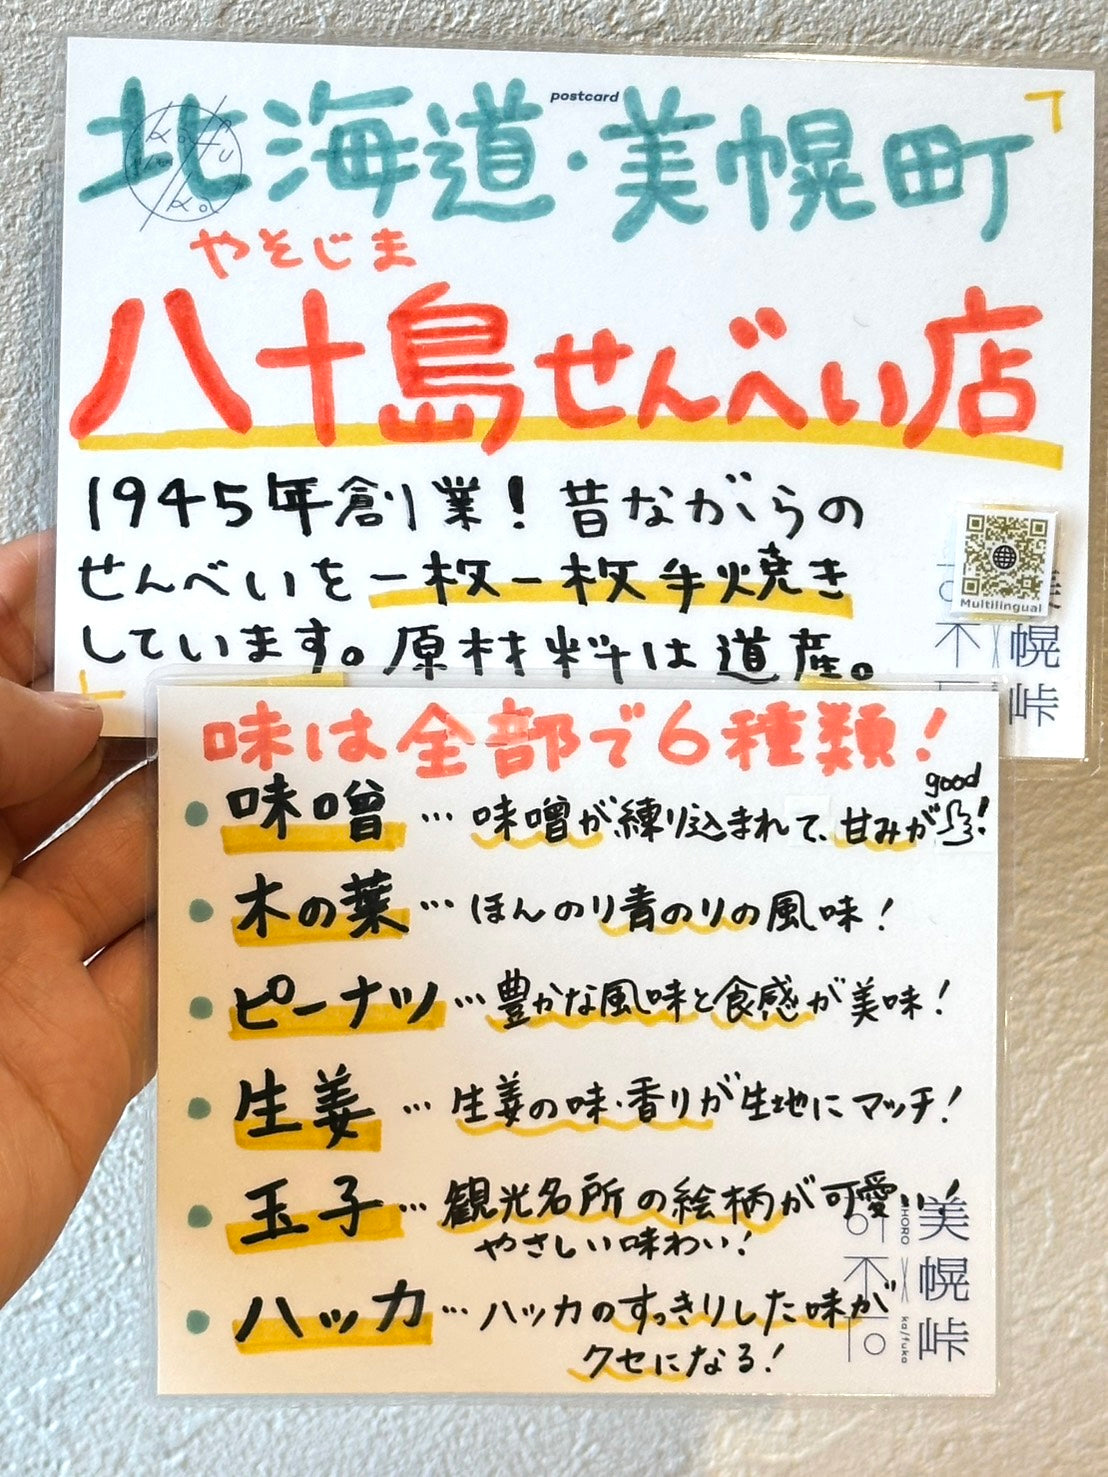 postcard
北海道・美幌町
やそじま
八十島せんべい店
1945年創業！昔ながらの
せんべいを一枚一枚手焼き
しています。原材料は道産。
Multilingual
幌
峠
味は全部で6種類！
good
味噌…味噌が練り込まれて、甘みが
木の葉…ほんのり青のりの風味！
ピーナツ…豊かな風味と食感が美味！
生姜…生姜の味・香りがが生地にマッチ！
玉子…観光名所の絵柄が可愛い！
やさしい味わい！
ハッカ…ハッカのすっきりした味が
クセになる！
美幌峠
HORO
ka/fuka